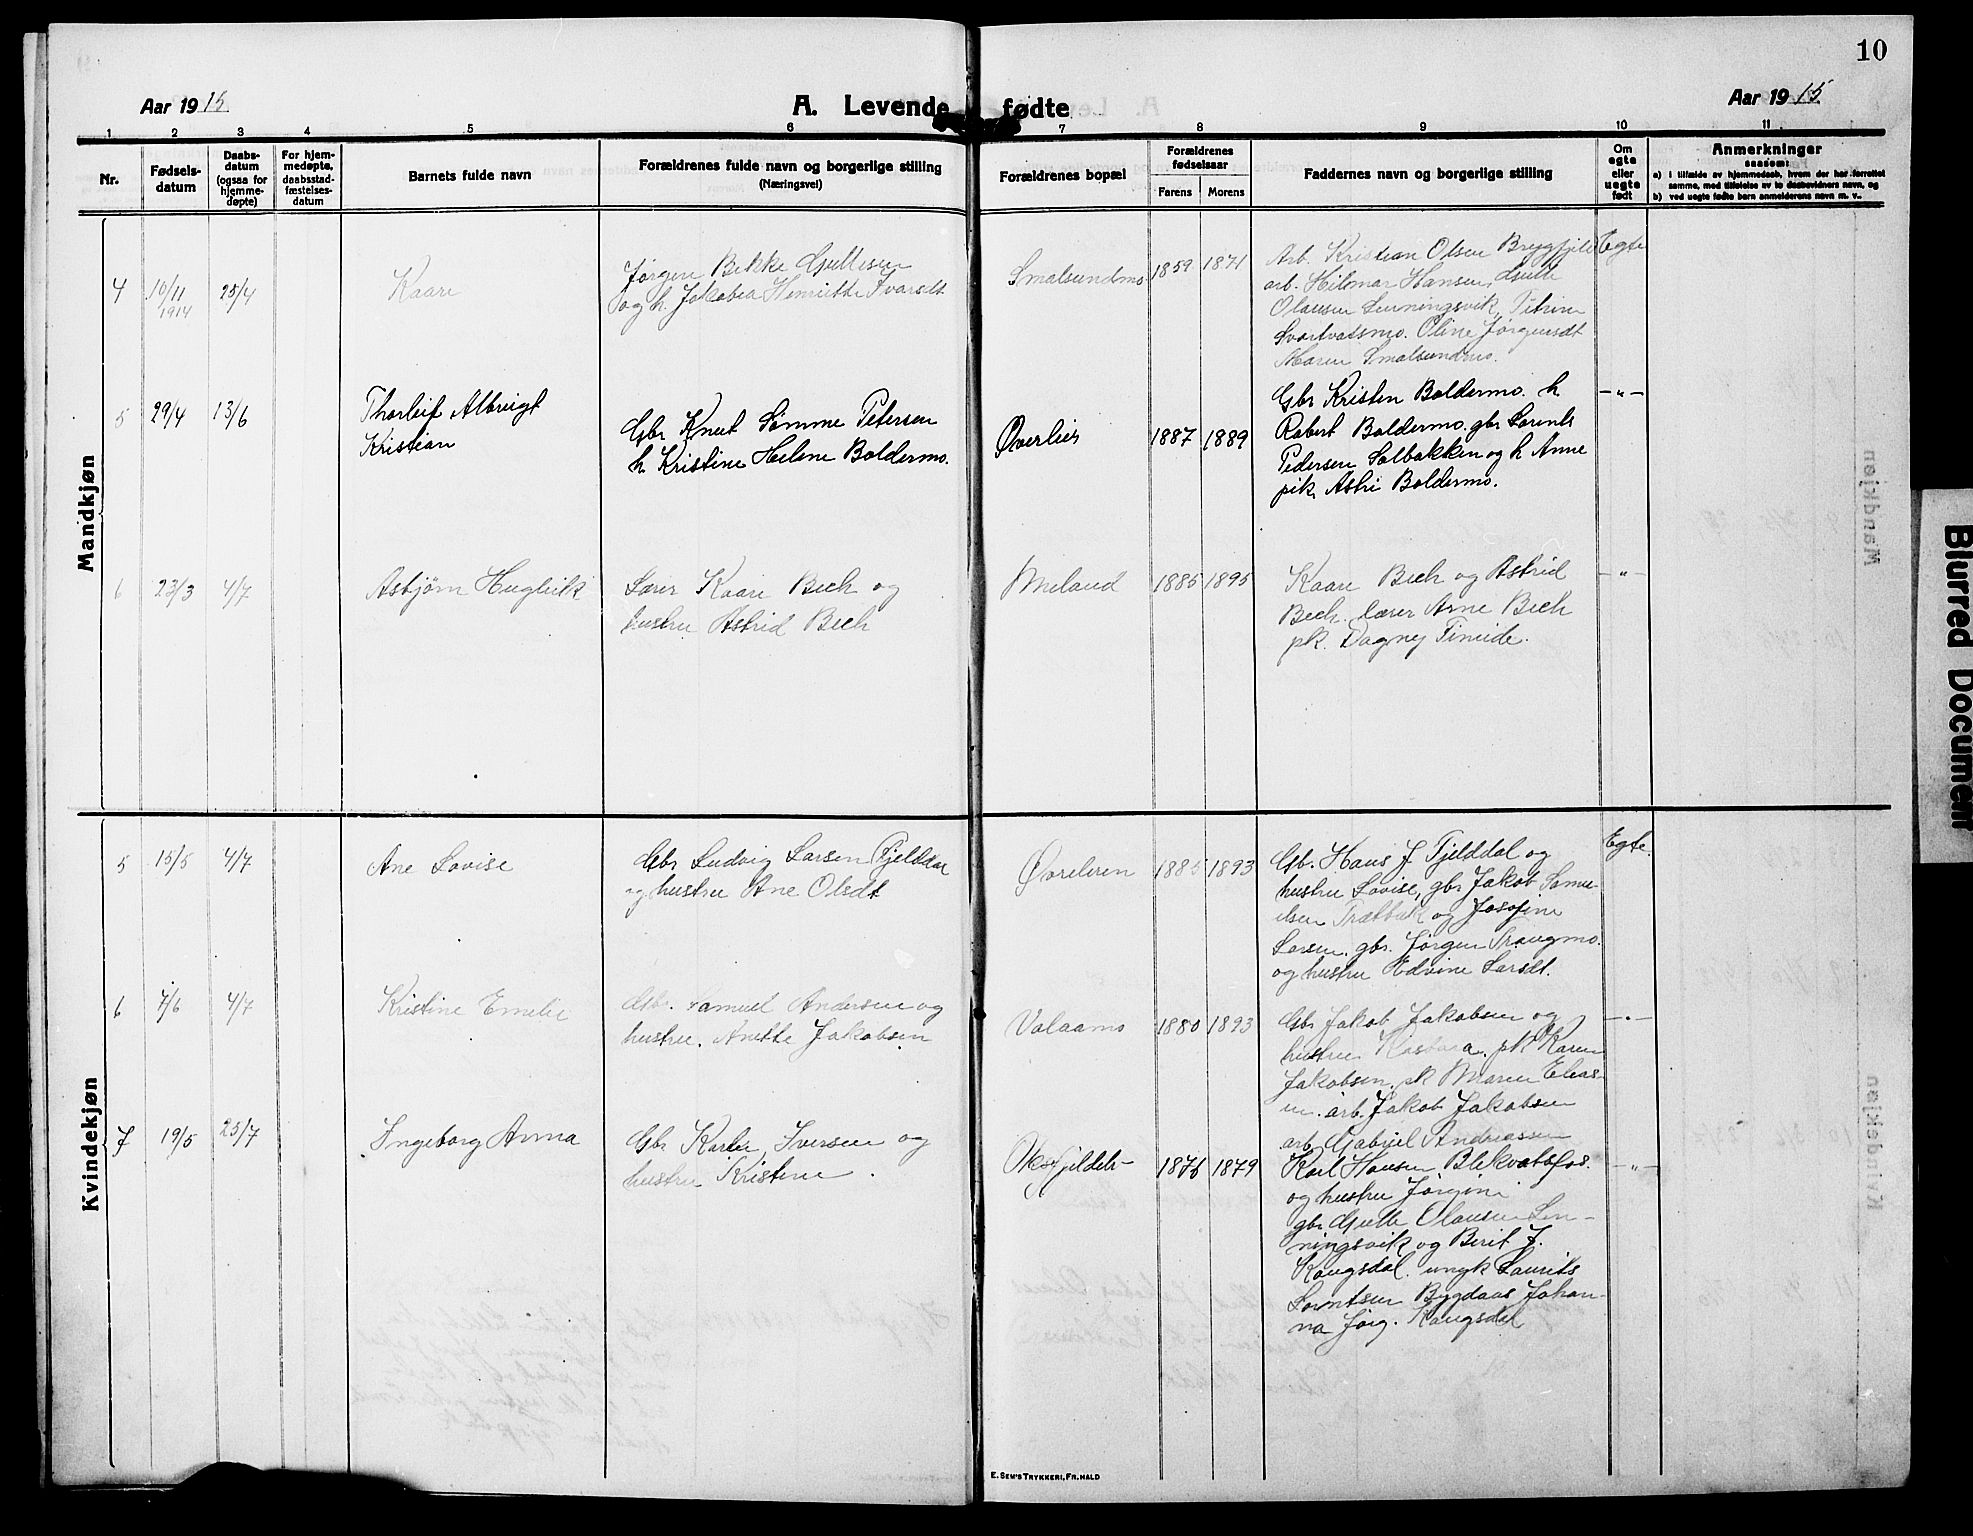 10
Aar 1915
A. Levende fødte
Aar 1915
1 2 3 4 5 6 7 8 9 10 11
Nr.
Fødsels-
datum
Daabs-
datum
(ogsaa for
hjemme-
døpte)
For hjem-
medøpte,
daabsstad-
fæstelses-
datum
Barnets fulde navn
Forældrenes fulde navn og borgerlige stilling
(Næringsvei)
Forældrenes bopæl
Forældrenes
fødselsaar
Farens Morens
Faddernes navn og borgerlige stilling
Om
egte
eller
uegte
født
Anmerkninger
saasom:
a) i tilfælde av hjemmedaab, hvem der har forrettet
samme, med tilføielse av to daabsvidners navn, og
b) ved uegte fødte barn anmelderens navn m. v..
Mandkjøn
4 10/11 1914 25/4 Kaare
Jørgen Bekke
og h. Jakobea Henriette Ivarsdt
Smalsundmo 1859 1871
Arb. Kristian Olsen Brygfjeld
arb. Hilmar Hansen,
Olausen
Svartvatsmo. Oline Jørgensdt
Maren Smalsundmo.
Egte
5 29/4 13/6 Thorleif Albreigt
Kristian
Gbr Knut Sømme Petersen
h. Kristine Helene Boldermo.
Øverlier 1887 1889
Gbr Kristen Boldermo. h
Robert Boldermo. gbr Lorents
Pedersen Solbakken og h Anne
pik. Astri Boldermo.
-"-
6 23/3 4/7 Asbjørn
Lærer Kaare Bech og
hustru Astrid Bech
Meland 1885 1895
Kaare Bech og Astrid
Bech. lærer Arne Bech
pk. Dagny
-"-
Kvindekjøn
5 15/5 4/7 Ane Lovise
Gbr Ludvig Larsen Fjelddal
og hustru Ane Olsdt
Øvreleren 1885 1893
Gb. Hans J. Fjelddal og
hustru Lovise, gbr Jakob Samu-
elsen Trætbak og Josefine
Larsen. gbr. Jørgen
og hustru Edvine Larsdt.
Egte.
6 4/7 Kristine Emelie
Gbr. Samuel Andersen og
hustru. Anette Jakobsen
Valaamo 1880 1893
Gbr Jakob Jakobsen og
hustru pk Karen
Jakobsen. pk Maren Elias-
arb. Jakob Jakobsen
arb Gabriel Andreassen
-"-
7 19/5 25/7 Ingeborg Anna
Gbr Iversen og
hustru Kristine.
1876 1879
Karl Hansen Blekvatsfos.
og hustru Jørgine
gbr Olausen
og Berit J.
Kangsdal. ungk Laurits
Lorntsen Bygdaas Johan-
na Jørg. Kangsdal
-"-
E. Sem's Trykkeri, Fr.hald
Blurred Document